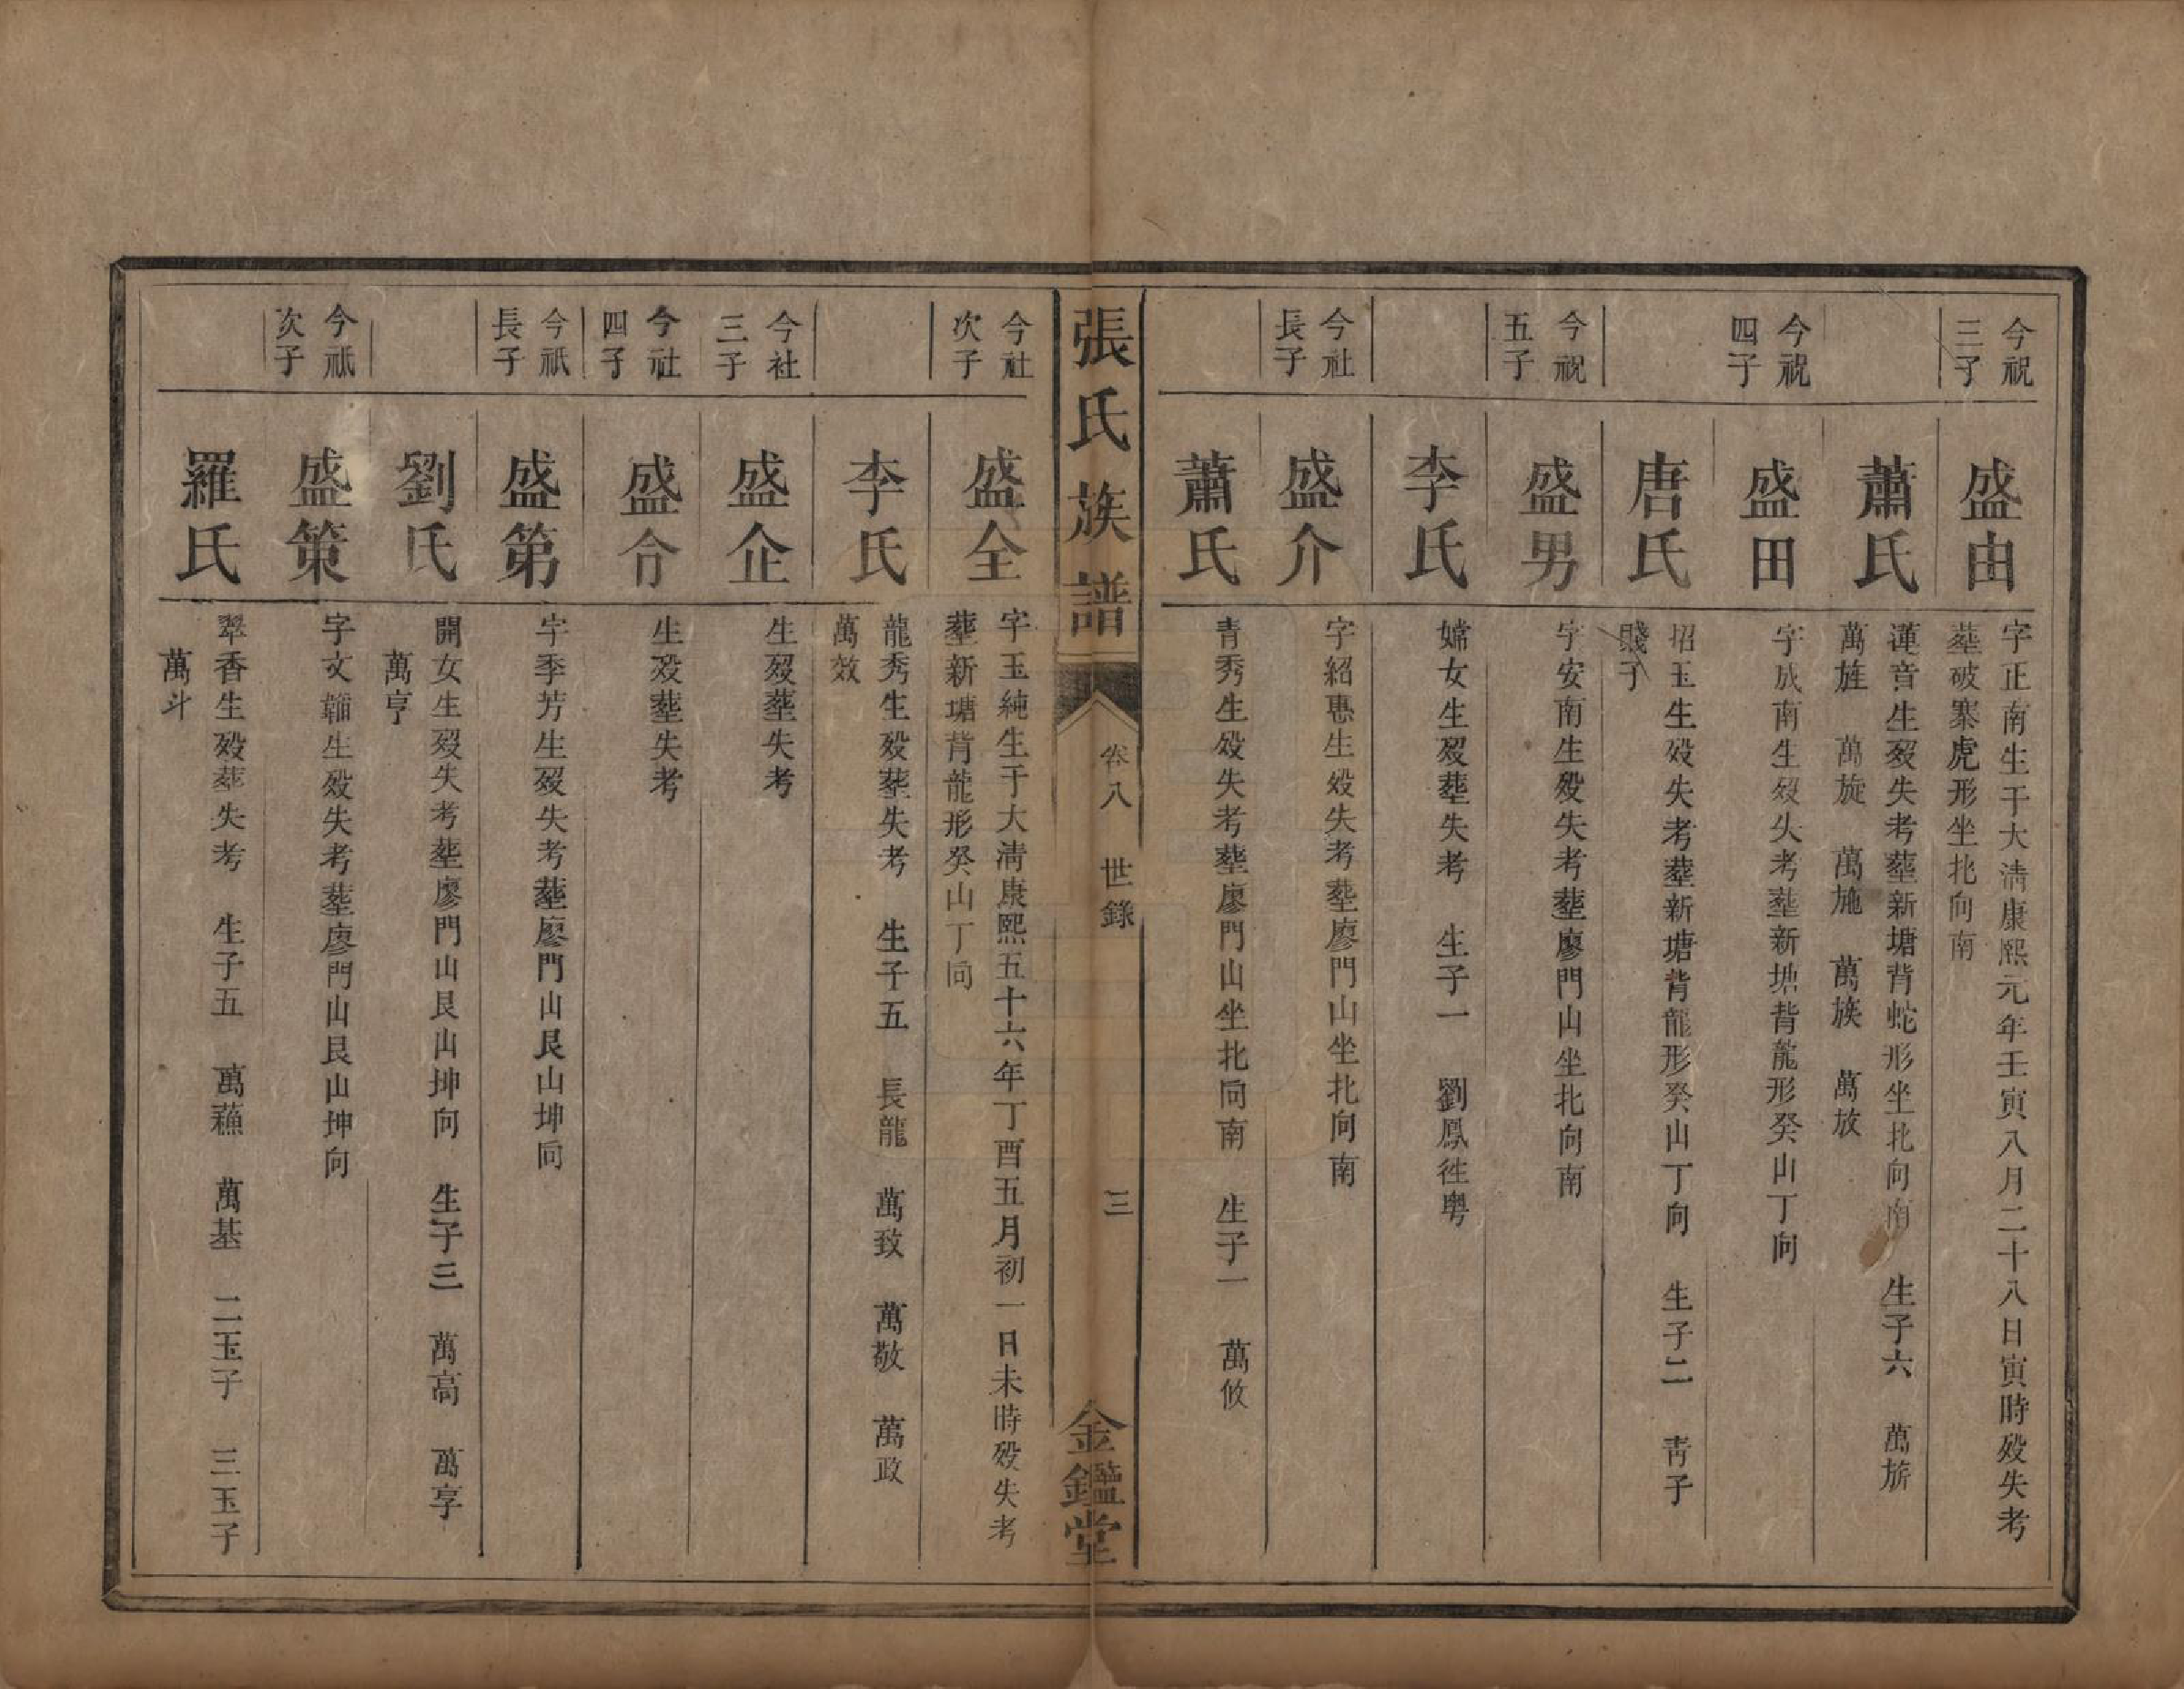 今祝
三子
盛由
字正南生于大清康熙元年壬寅八月二十八日寅時殁失考
塟破寨虎形坐北向南
蕭氏
運音生殁失考塟新塘背蛇形坐北向南 生子六 萬旂
萬旌 萬旋 萬施 萬族 萬放
今祝
四子
盛田
字成南生殁失考塟新塘背龍形癸山丁向
唐氏
招玉生殁失考塟新塘背龍形癸山丁向 生子二 靑子
賤子
今祝
五子
盛男
字安南生殁失考塟廖門山坐北向南
李氏
嫦女生殁塟失考 生子一 劉鳳徃粤
今社
長子
盛介
字紹惠生殁失考塟廖門山坐北向南
蕭氏
青秀生殁失考塟廖門山坐北向南 生子一 萬攸
張氏族譜
卷八 世錄
三
金鑑堂
今社
次子
盛全
字玉純生于大清康熙五十六年丁酉五月初一日未時殁失考
塟新塘背龍形癸山丁向
李氏
龍秀生殁塟失考 生子五 長龍 萬致 萬敬 萬政
萬效
今社
三子
盛企
生殁塟失考
今社
四子
盛
生殁塟失考
今祇
長子
盛第
字季芳生殁失考塟廖門山艮山坤向
劉氏
開女生殁失考塟廖門山艮山坤向 生子三 萬高 萬享
萬亨
今祇
次子
盛策
字文生殁失考塟廖門山艮山坤向
羅氏
翠香生殁塟失考 生子五 萬蘓 萬基 二玉子 三玉子
萬斗